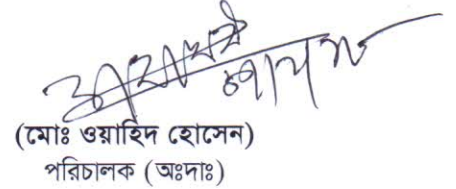 (মোঃ ওয়াহিদ হোসেন)
পরিচালক (অঃদাঃ)